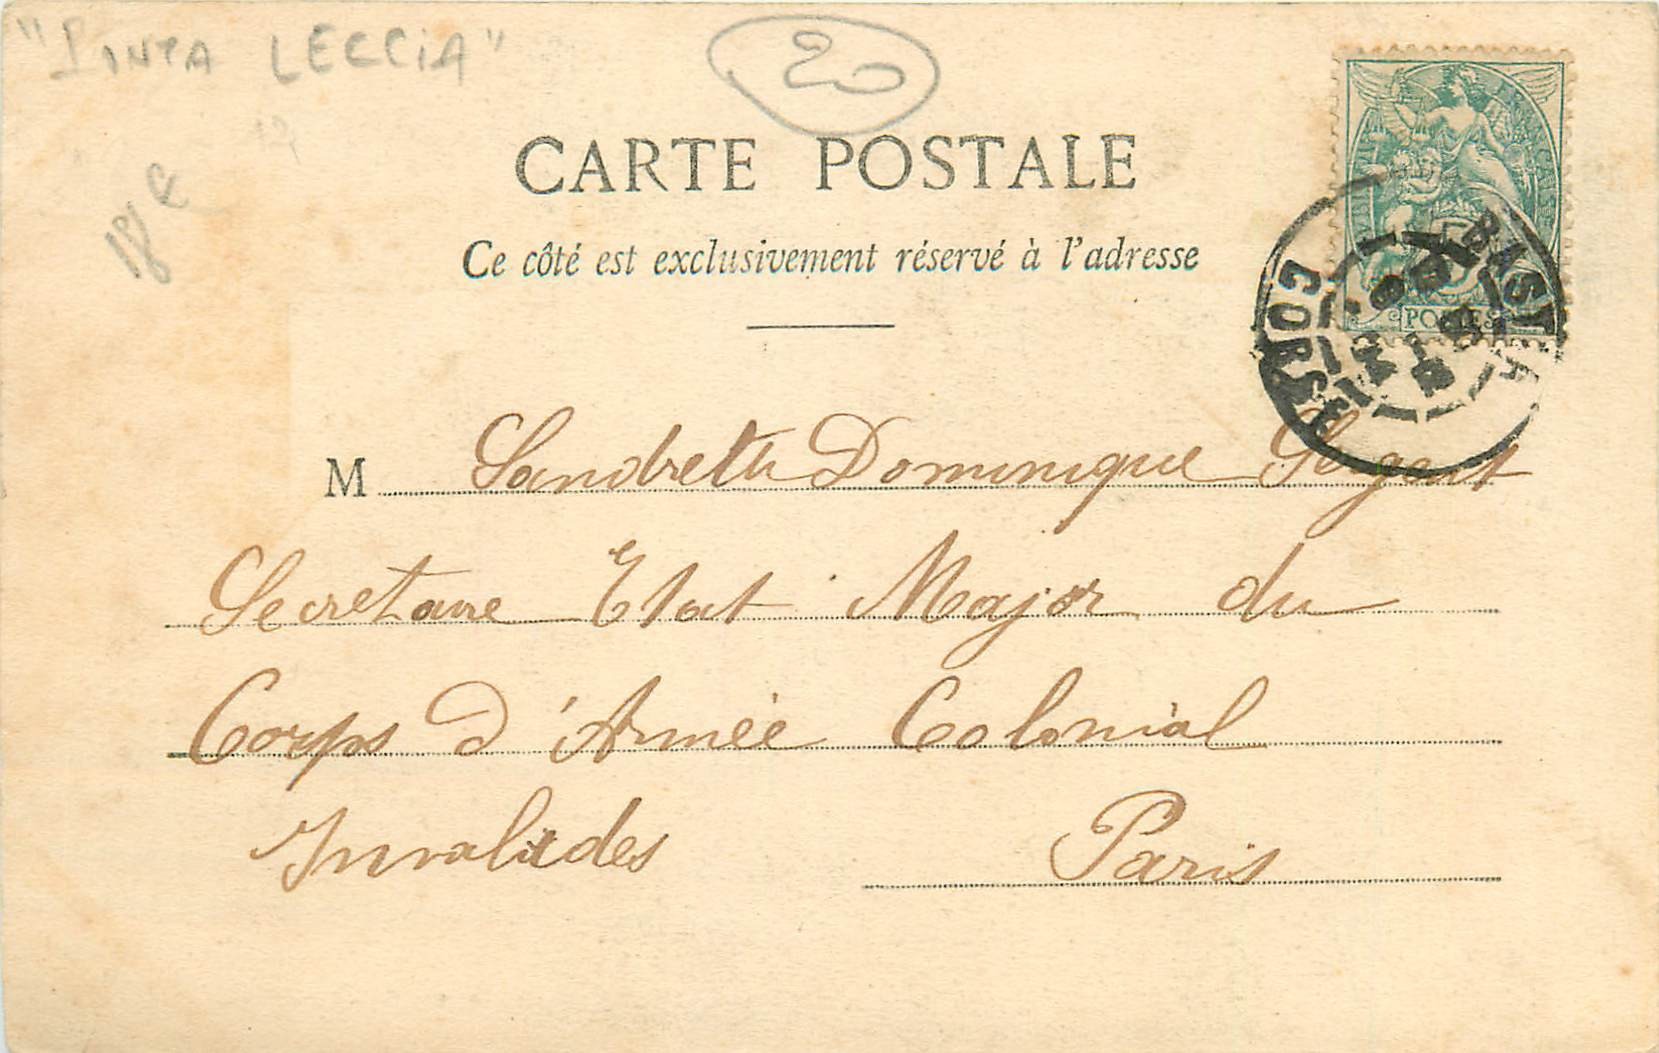 "PONTA LECCIA"
20
18 €
CARTE POSTALE
Ce côté est exclusivement réservé à l'adresse
POSTES
BASTIA
CORSE
M Sandretti Dominique Sergent
Secretaire Etat Major du
Corps d'Armée Colonial
Invalides Paris